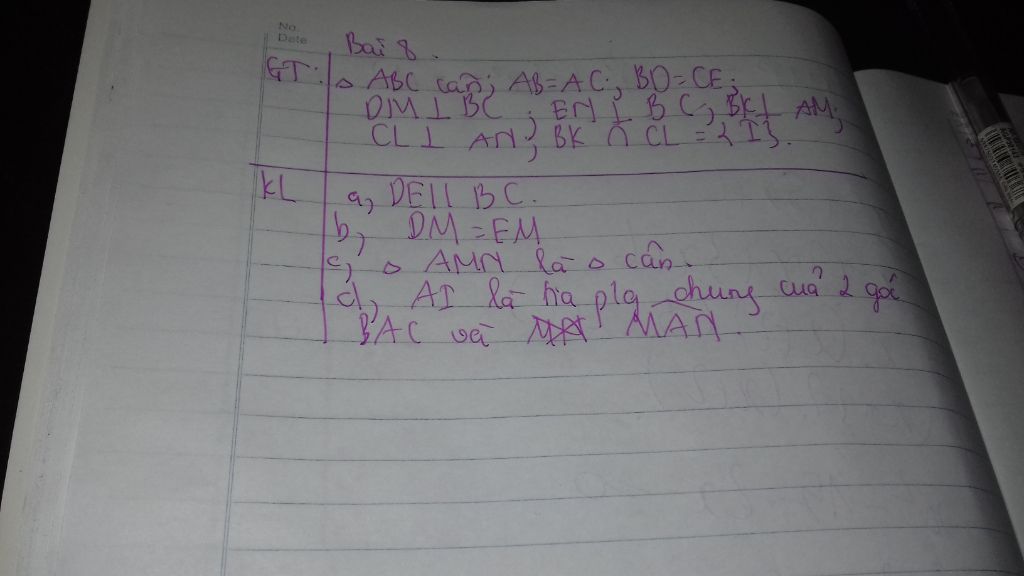 No.
Date
Bài 8.
GT: △ ABC cân; AB=AC; BD=CE;
DM ⊥ BC ; EN ⊥ BC; BK⊥ AM;
CL ⊥ AN; BK ∩ CL = {I}.
KL a, DE || BC.
b, DM = EM
c, △ AMN là △ cân.
d, AI là tia p/g chung cuả 2 góc
BAC và MAN.